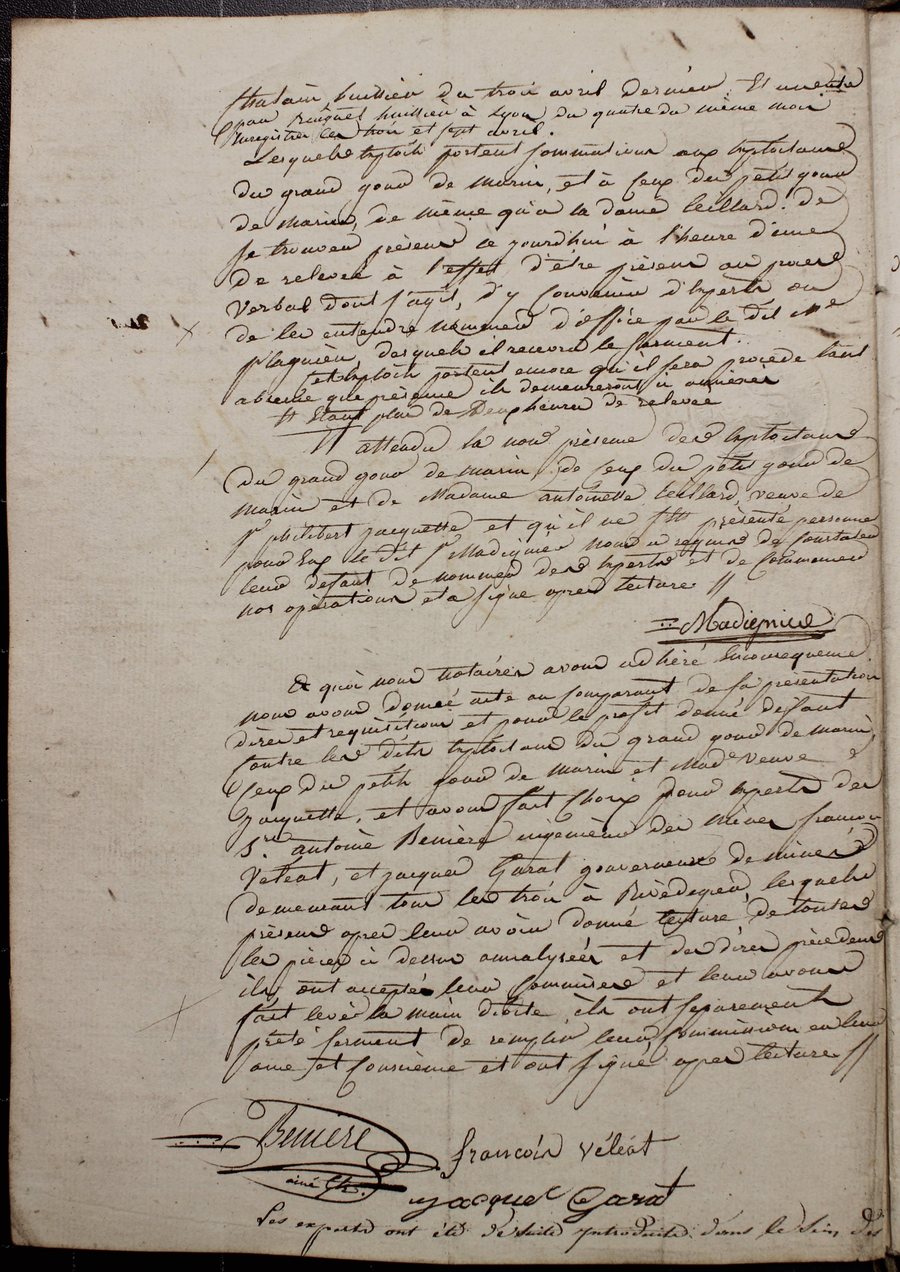 huissier du trois avril dernier Et un autre
par huissier à Lyon du quatre du même mois
Enregistrés les trois et sept avril.
Lesquels Exploits portent sommations aux Exploitans
du grand gour de marin, et à ceux du petit gour
de marin, de même qu'a la dame Ceillard. de
se trouver présens ce jourdhui à l'heure d'une
de relevée à l'effet d'être présens au procès
Verbal dont s'agit, d'y convenir d'Experts ou
de les entendre nommer d'office par le dit Me
Plagnieu, desquels il recevra le serment.
et Exploits portent encore qu'il sera procédé tant
absence que présence ils demeureront ci annexés
Etant plus de Deux heures de relevée
attendu la non présence des Exploitans
du grand gour de marin, de ceux du petit gour de
marin et de Madame antoinette Ceillard, veuve de
Sr philibert jacquette et qu'il ne s'est présenté personne
pour Eux le dit Sr Madignier nous a requis de Constater
leur defaut de nommer des Experts et de Commencer
nos opérations et a signé après lecture //
Madignier
A quoi nous notaires avons adhéré En conséquence
nous avons donné acte au comparant de sa présentation
dires et requisition et pour le profit donné deffaut
Contre les dits Exploitans du grand gour de marin,
Ceux du petit gour de marin et Made Veuve
jacquette, et avons fait choix pour Experts des
Srs antoine Benière ingénieur des mines francois
Veleat, et jacques Garat gouverneurs de mines
demeurant tous les trois à Rivedegier, lesquels
présens après leur avoir donné lecture de toutes
les pièces ci dessus annalysées et des dires précédens
ils ont accepté leur commission et leur avons
fait lever la main droite, ils ont séparement
prêté serment de remplir leur commission en leur
ame et Conscience et ont signé après lecture //
Benière
ainé
francois véleat
jacque Garat
Les experts ont été de suite introduits dans le sein des